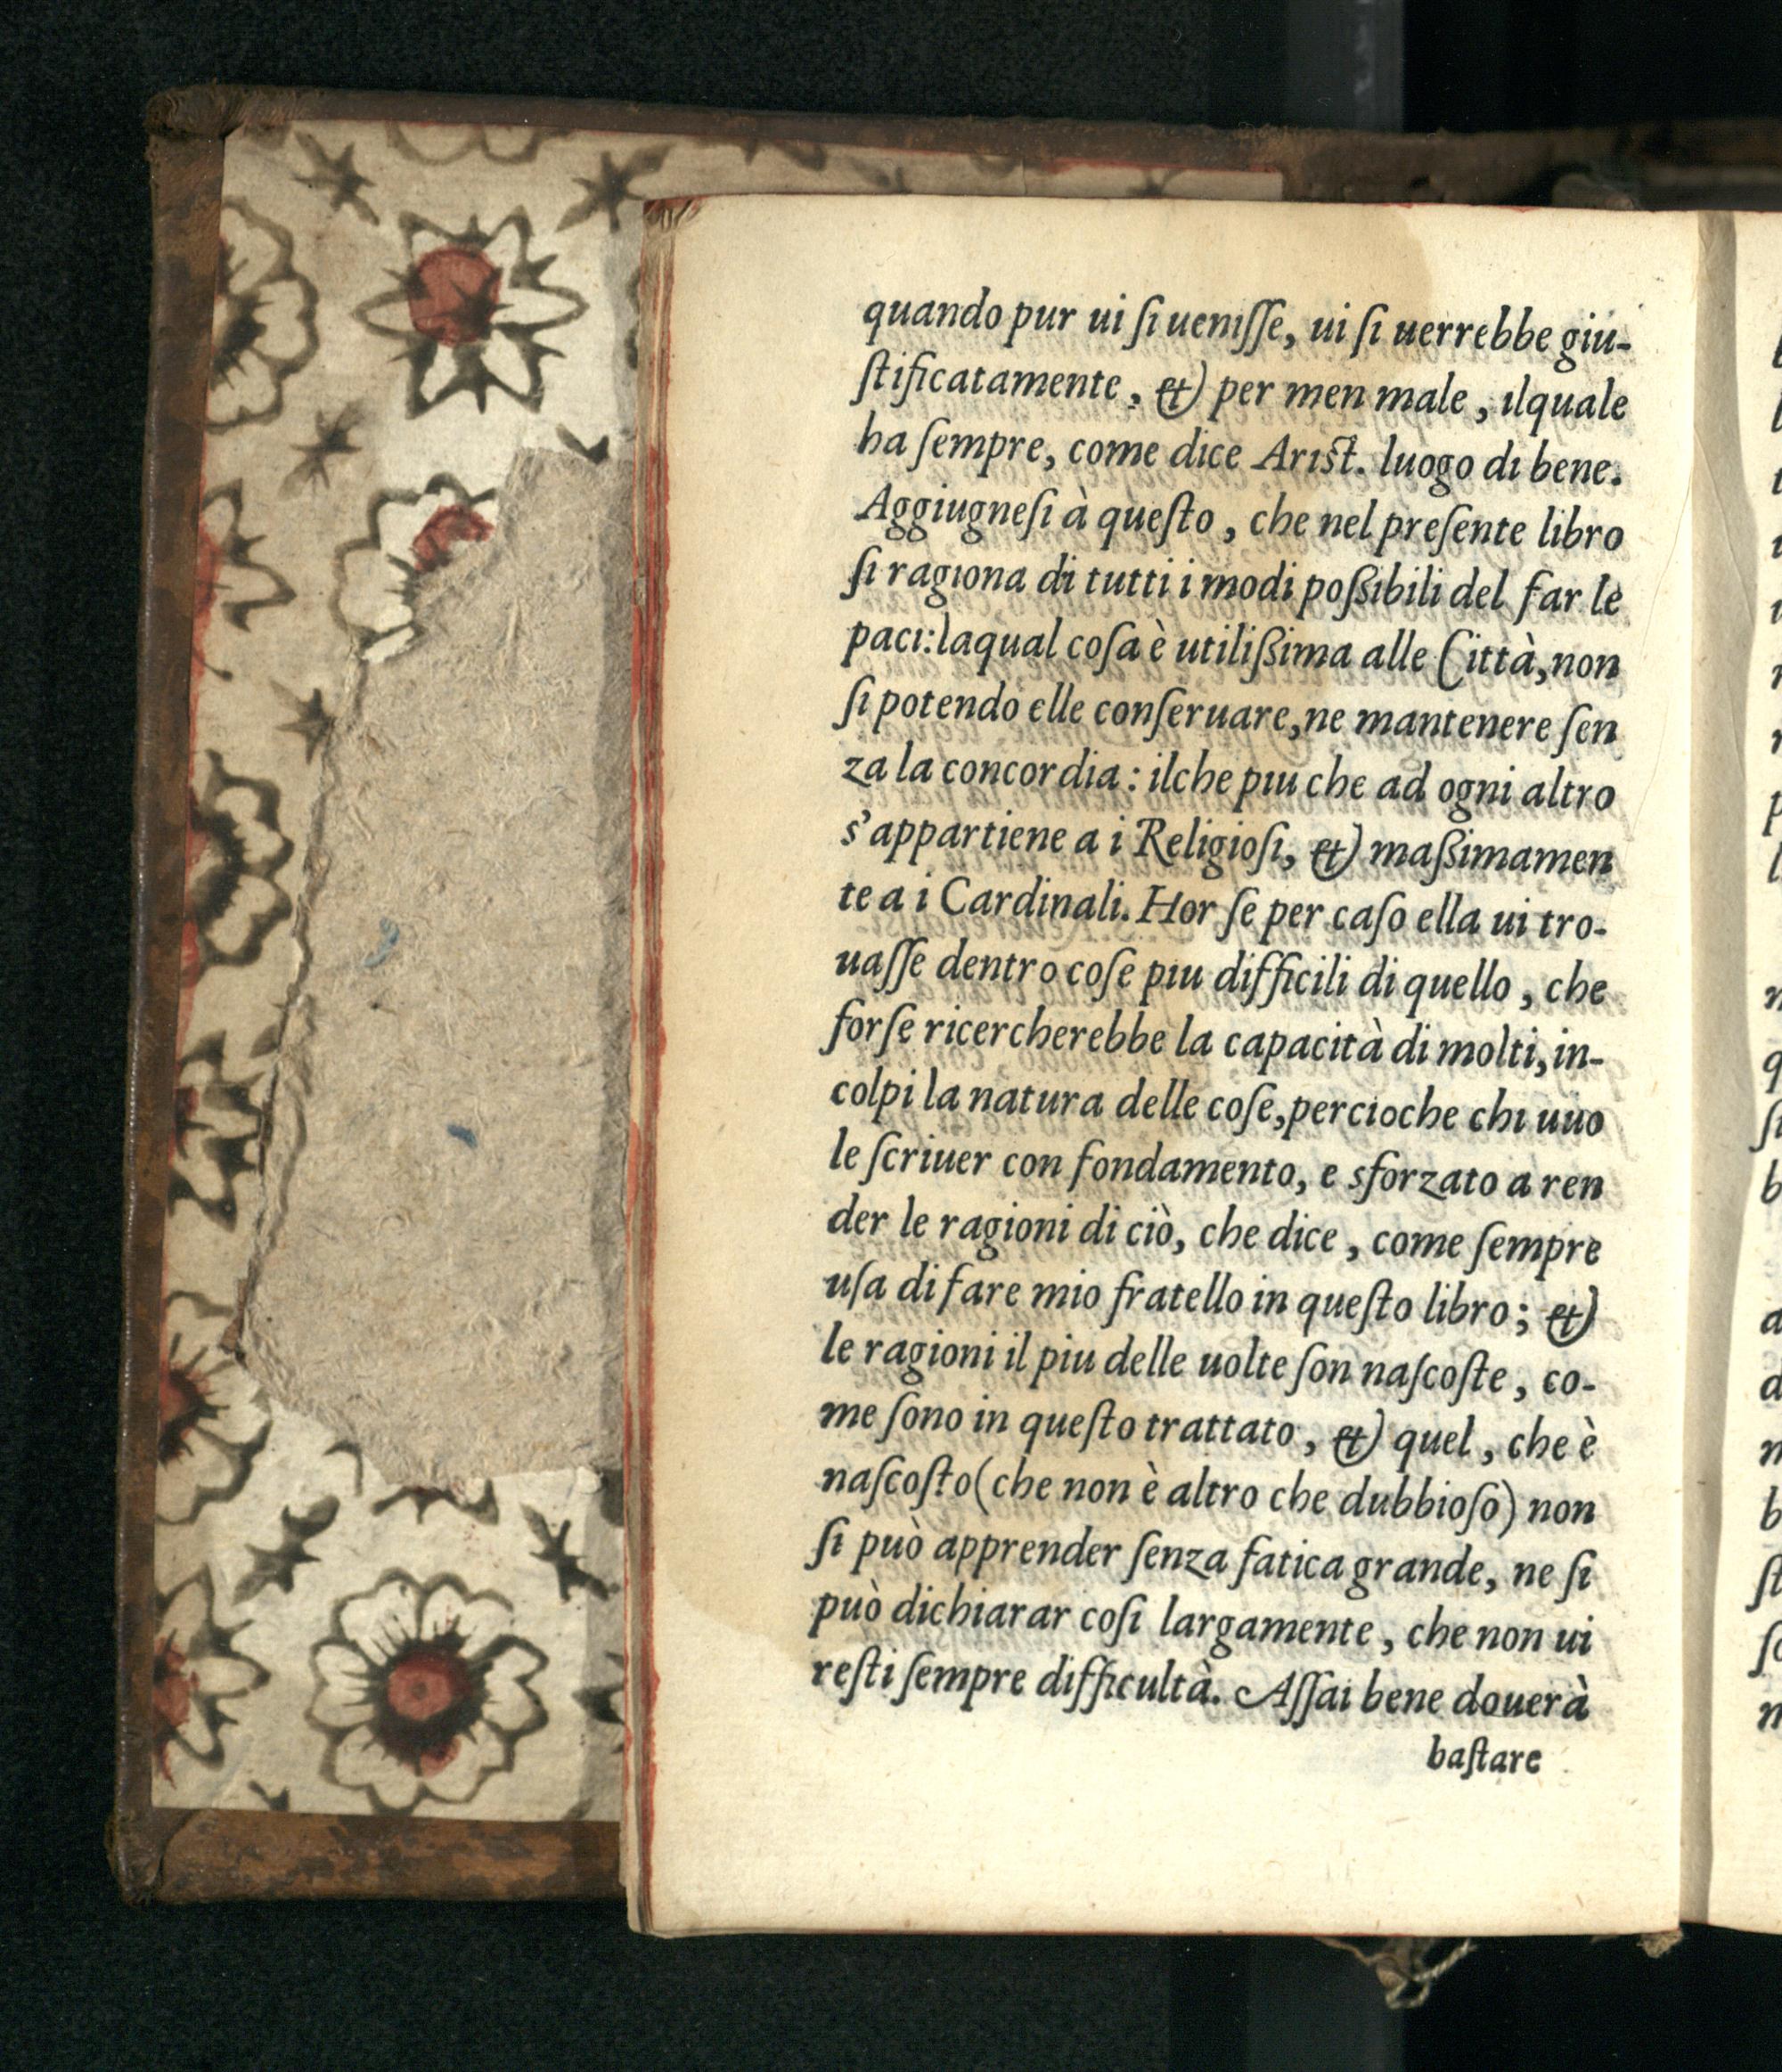 quando pur ui ſi ueniſſe, ui ſi uerrebbe giu-
ſtificatamente, & per men male, ilquale
ha ſempre, come dice Ariſt. luogo di bene.
Aggiugneſi à queſto, che nel preſente libro
ſi ragiona di tutti i modi poßibili del far le
paci: laqual coſa è utilißima alle Città, non
ſi potendo elle conſeruare, ne mantenere ſen
za la concordia: ilche piu che ad ogni altro
s'appartiene a i Religioſi, & maßimamen
te a i Cardinali. Hor ſe per caſo ella ui tro-
uaſſe dentro coſe piu difficili di quello, che
forſe ricercherebbe la capacità di molti, in-
colpi la natura delle coſe, percioche chi uuo
le ſcriuer con fondamento, e sforzato a ren
der le ragioni di ciò, che dice, come ſempre
uſa di fare mio fratello in queſto libro; &
le ragioni il piu delle uolte ſon naſcoſte, co-
me ſono in queſto trattato, & quel, che è
naſcoſto (che non è altro che dubbioſo) non
ſi può apprender ſenza fatica grande, ne ſi
può dichiarar coſi largamente, che non ui
reſti ſempre difficultà. Aſſai bene douerà
baſtare